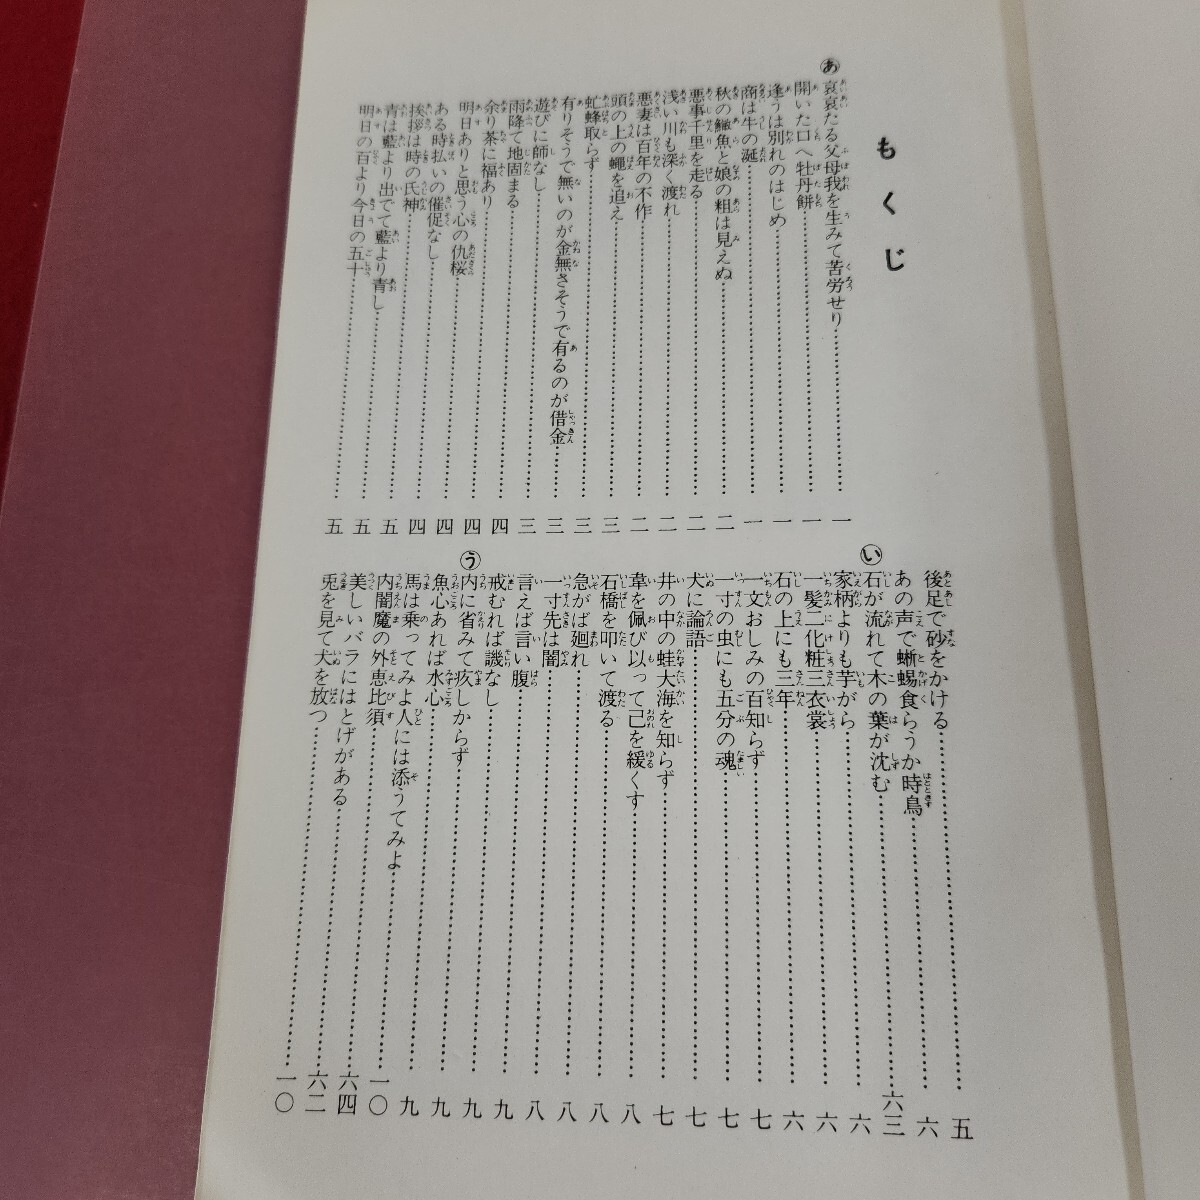 もくじ
あ
哀哀たる父母我を生みて苦労せり……一
開いた口へ牡丹餅……一
逢うは別れのはじめ……一
商は牛の涎……一
秋の鰄魚と娘の粗は見えぬ……二
悪事千里を走る……二
浅い川も深く渡れ……二
悪妻は百年の不作……二
頭の上の蠅を追え……三
虻蜂取らず……三
有りそうで無いのが金無さそうで有るのが借金……三
遊びに師なし……三
雨降て地固まる……四
余り茶に福あり……四
明日ありと思う心の仇桜……四
ある時払いの催促なし……四
挨拶は時の氏神……五
青は藍より出でて藍より青し……五
明日の百より今日の五十……五
後足で砂をかける……五
あの声で蜥蜴食らうか時鳥……六
い
石が流れて木の葉が沈む……六三
家柄よりも芋がら……六
一髪二化粧三衣裳……六
石の上にも三年……六
一文おしみの百知らず……七
一寸の虫にも五分の魂……七
犬に論語……七
井の中の蛙大海を知らず……七
韋を佩び以って己を緩くす……八
石橋を叩いて渡る……八
急がば廻れ……八
一寸先は闇……八
言えば言い腹……九
戒むれば譏なし……九
う
内に省みて疚しからず……九
魚心あれば水心……九
馬は乗ってみよ人には添うてみよ……一〇
内閻魔の外恵比須……六四
美しいバラにはとげがある……六二
兎を見て犬を放つ……一〇